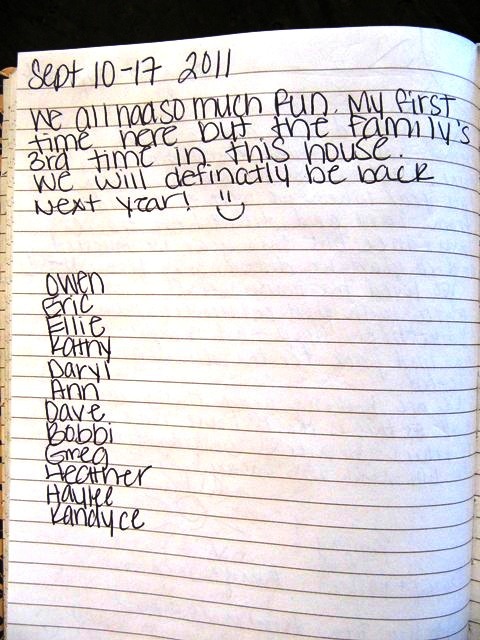 Sept 10-17 2011
We all had so much fun. My first
time here but the family's
3rd time in this house.
We will definatly be back
Next year! :)
Owen
Eric
Ellie
Kathy
Daryl
Ann
Dave
Bobbi
Greg
Heather
Haylee
Kandyce